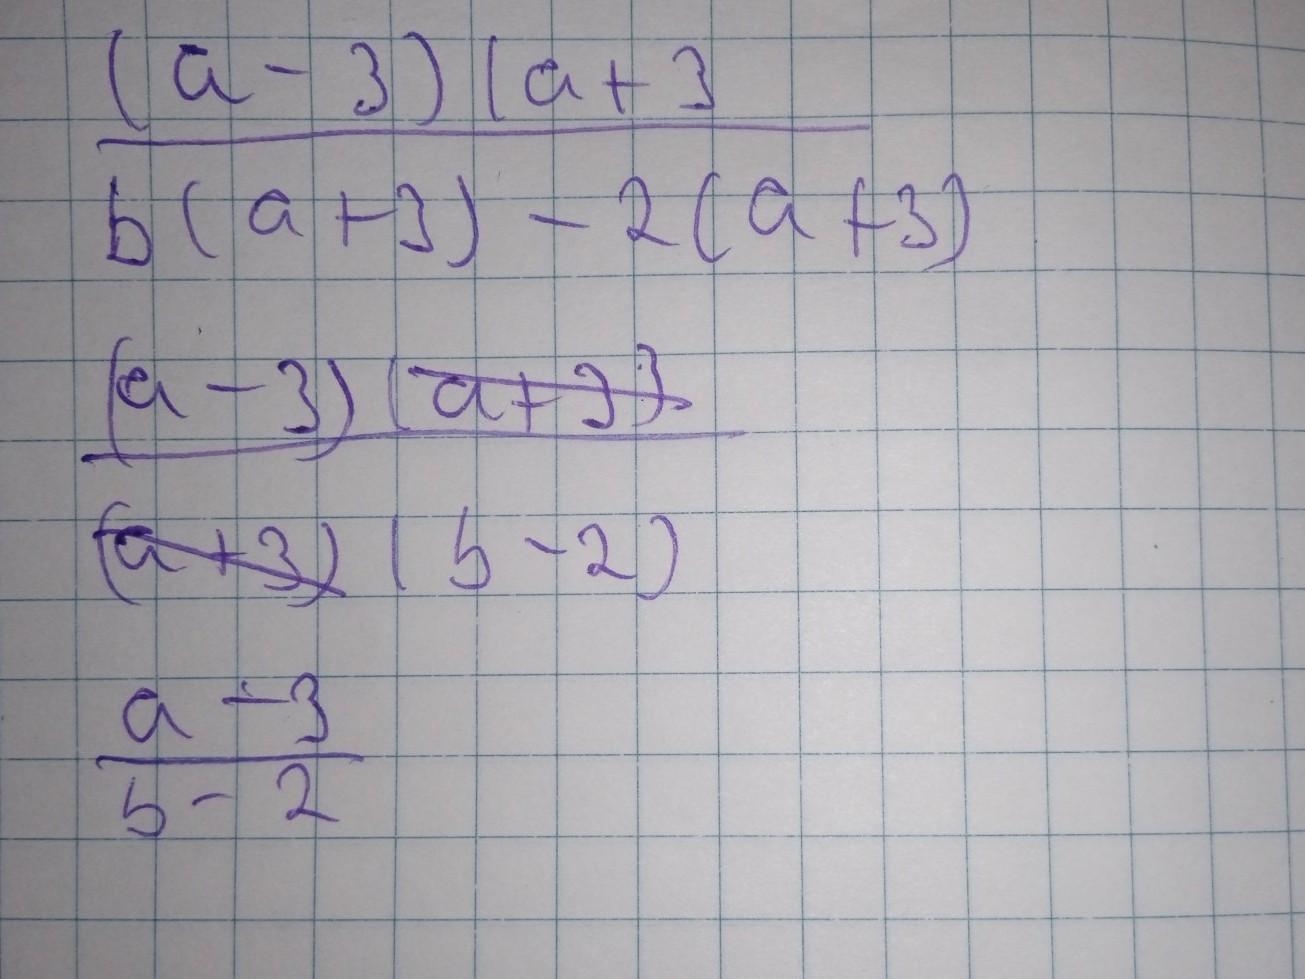 (a - 3)(a + 3
b(a + 3) - 2(a + 3)
(a - 3)(a + 3)
(a + 3)(b - 2)
a - 3
b - 2